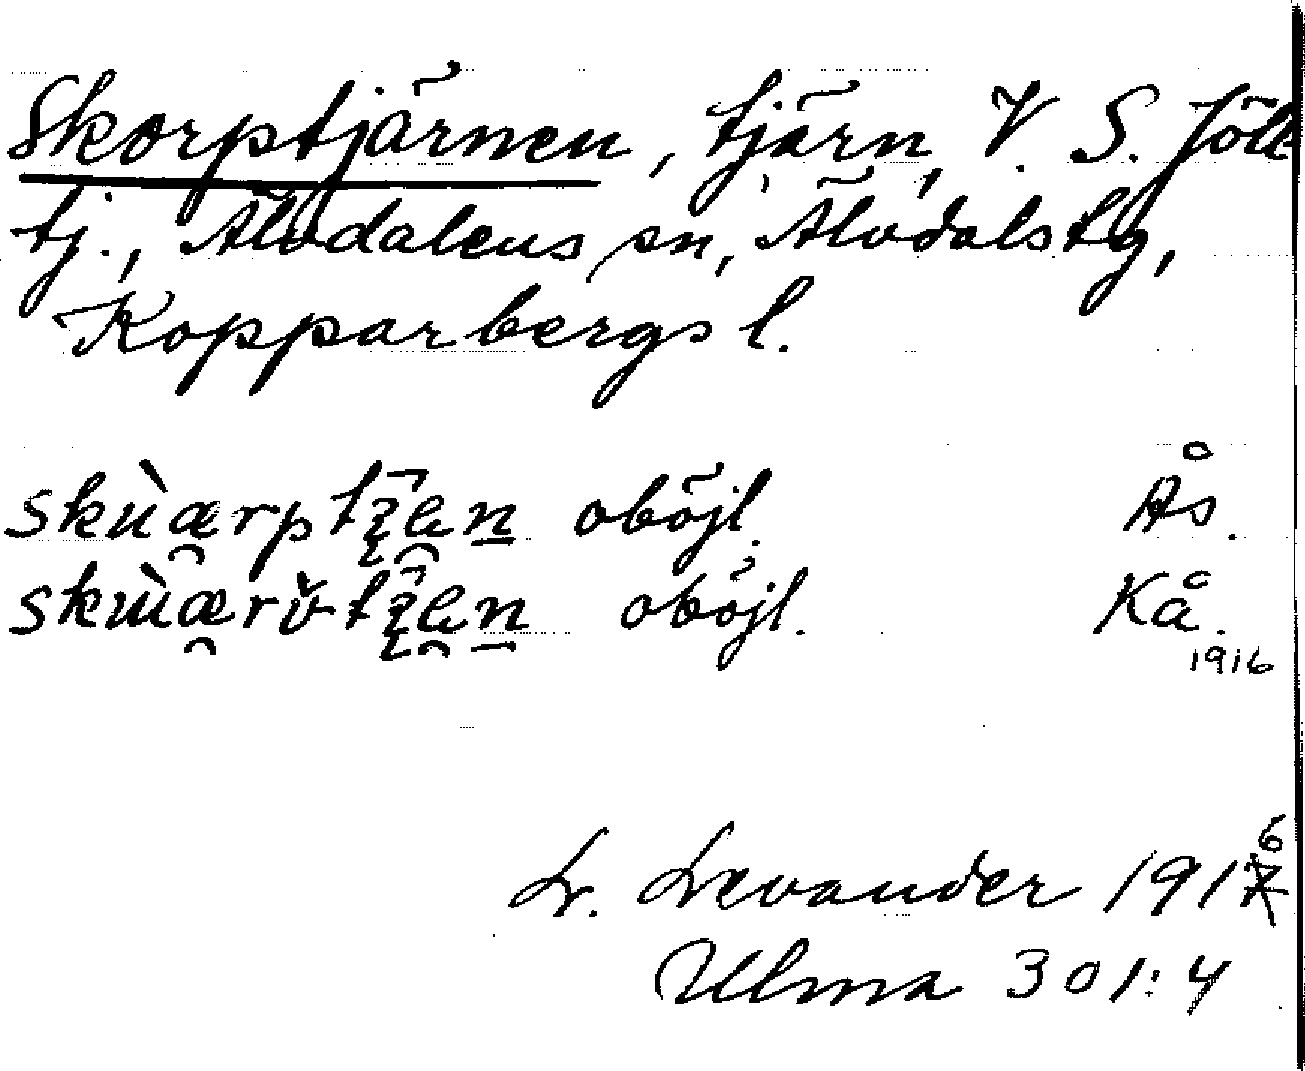 Skorptjärnen, tjärn, V. S. Jöll
tj., Älvdalens sn, Älvdals tg,
Kopparbergs l.
oböjl. Ås.
oböjl. Kå.
1916
L. Levander 1916
Ulma 301:4